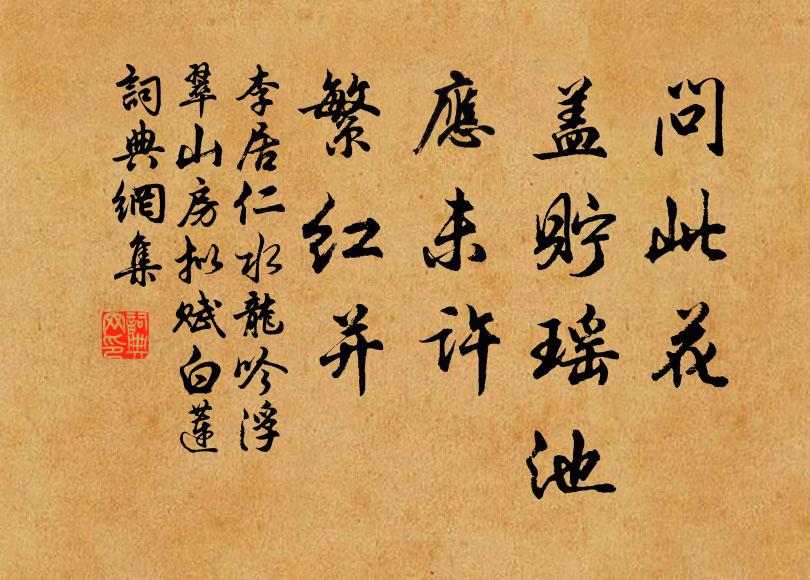 問此花
盖貯瑶池
應未许
繁红并
李居仁水龍吟浮
翠山房拟赋白蓮
詞典網集
詞典网印